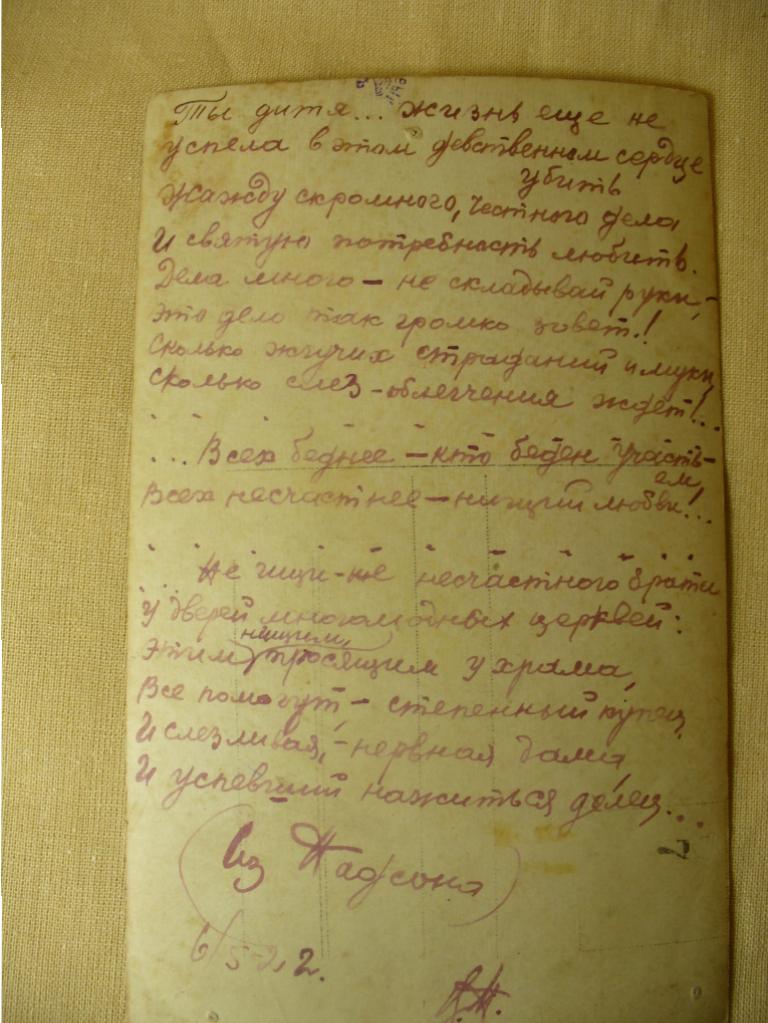 Ты дитя... жизнь еще не
успела в этом девственном сердце
убить
Жажду скромного, честного дела
И святую потребность любить.
Дела много – не складывай руки, –
это дело так громко зовет!
Сколько жгучих страданий и муки,
Сколько слез – облегчения ждет!...
... Всех беднее – кто беден участь-
ем,
Всех несчастнее – нищий любви!...
Не ищи-же несчастного брата
У дверей многолюдных церквей:
нищим,
Этим просящим у храма,
Все помогут – степенный купец
И слезливая, – нервная дама,
И успевший нажиться делец...
(Из Надсона)